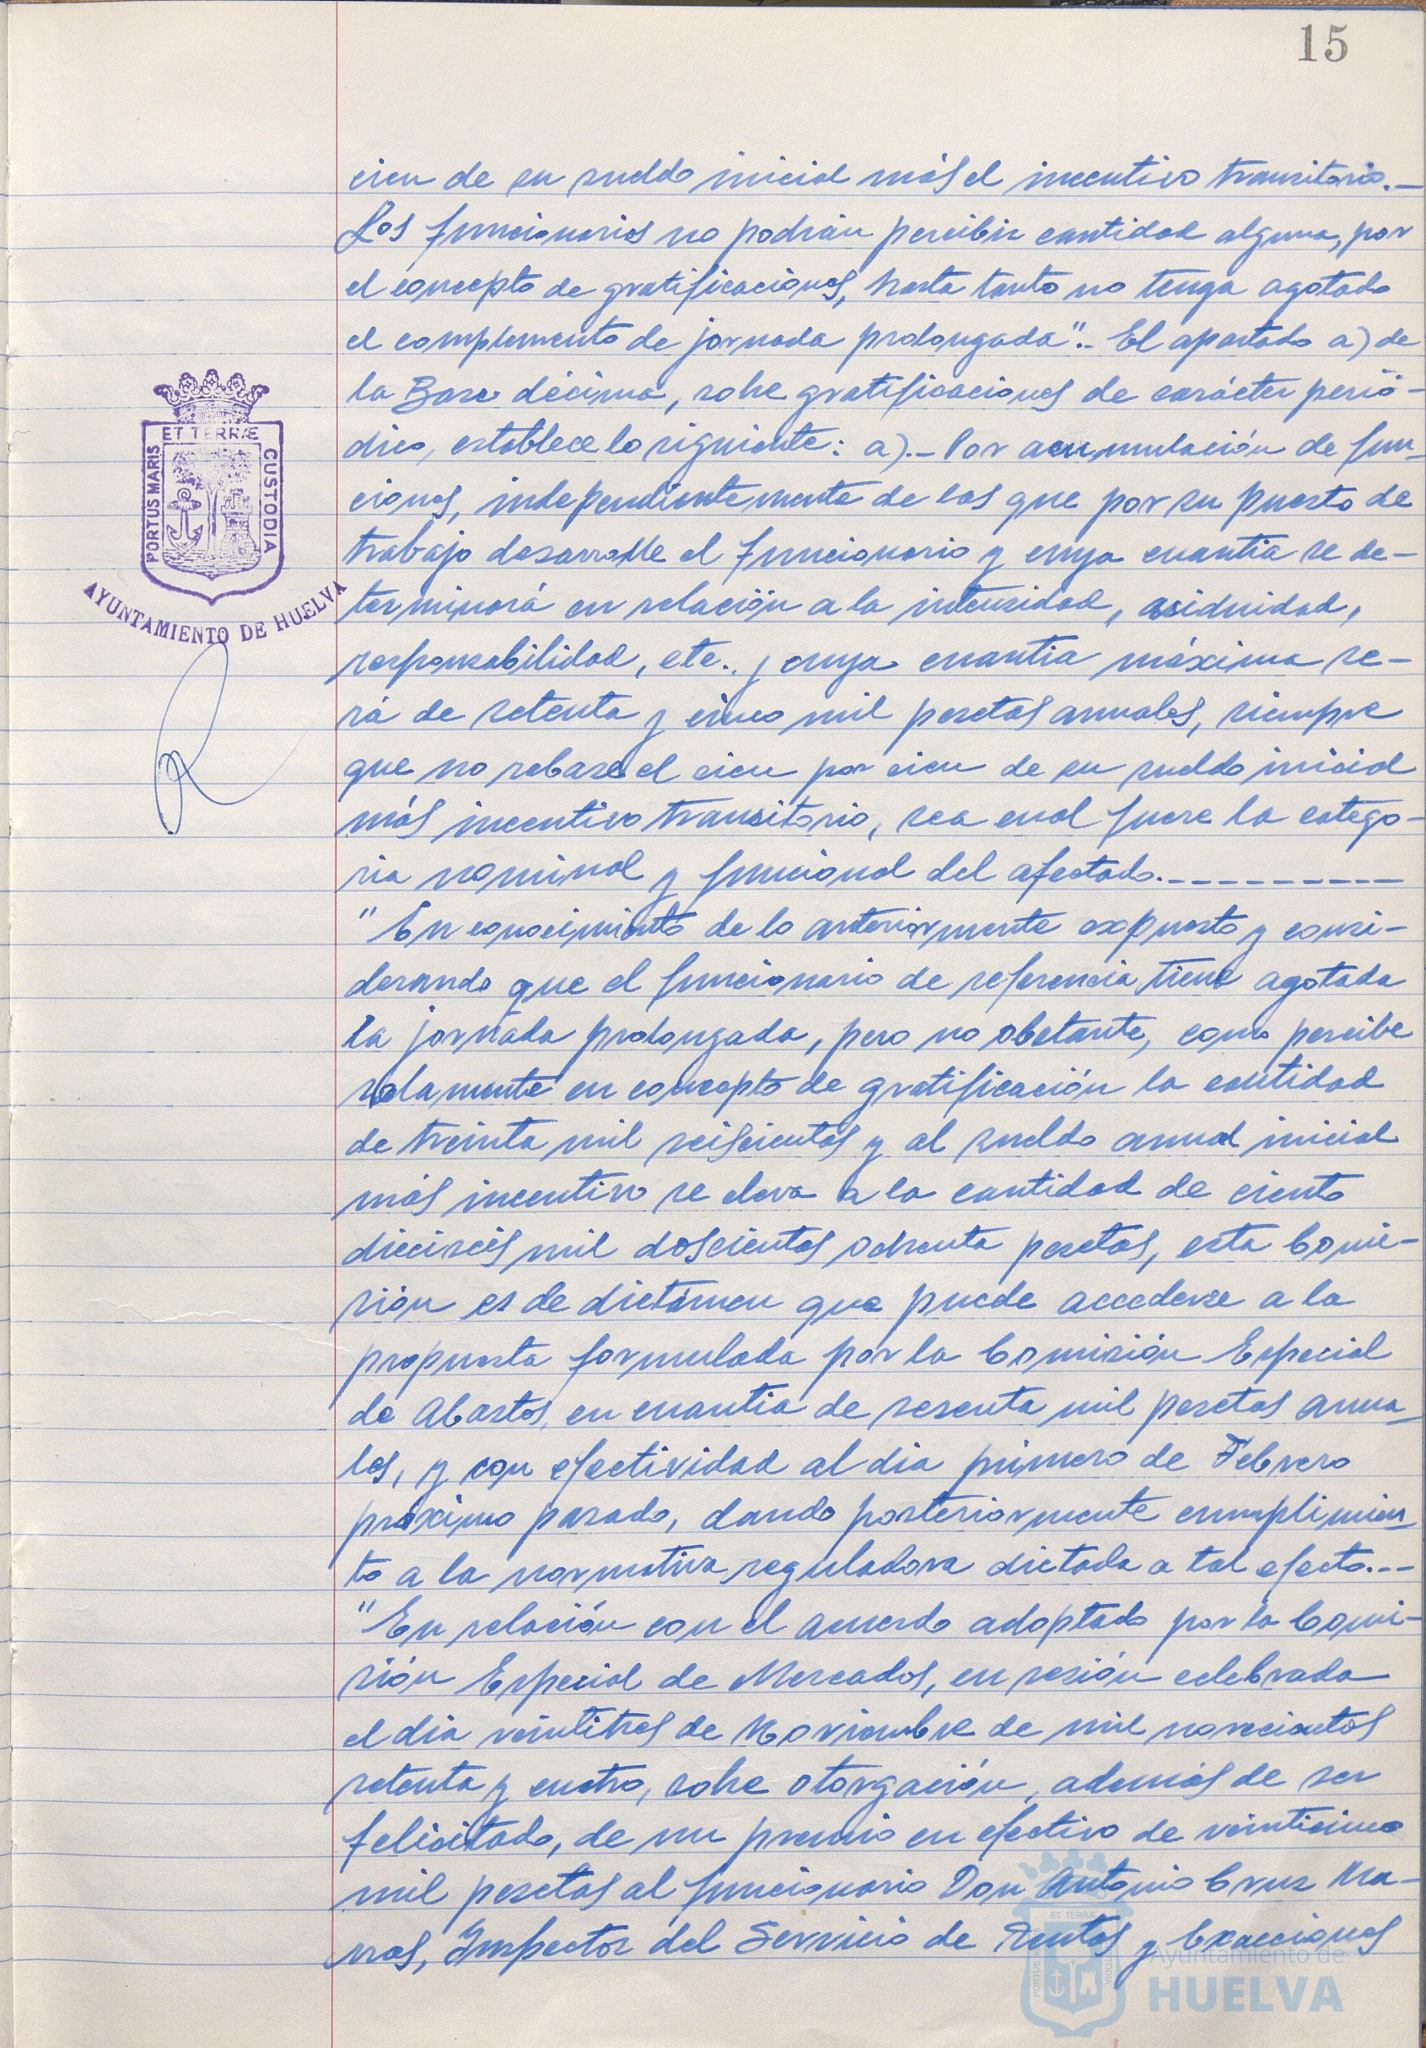 15
cien de su sueldo inicial más el incentivo transitorio.—
Los funcionarios no podrán percibir cantidad alguna, por
el concepto de gratificaciones, hasta tanto no tenga agotado
el complemento de jornada prolongada".- El apartado a) de
la Base décima, sobre gratificaciones de carácter perió-
dico, establece lo siguiente: a).- Por acumulación de fun-
ciones, independientemente de las que por su puesto de
trabajo desarrolle el funcionario y cuya cuantia se de-
terminará en relación a la intensidad, asiduidad,
responsabilidad, etc., y cuya cuantia máxima se-
rá de setenta y cinco mil pesetas anuales, siempre
que no rebase el cien por cien de su sueldo inicial
más incentivo transitorio, sea cual fuere la catego-
ria nominal y funcional del afectado.----------
"En conocimiento de lo anteriormente expuesto y consi-
derando que el funcionario de referencia tiene agotada
la jornada prolongada, pero no obstante, como percibe
solamente en concepto de gratificación la cantidad
de treinta mil seiscientas y al sueldo anual inicial
más incentivo se eleva a la cantidad de ciento
dieciseis mil doscientas ochenta pesetas, esta Comi-
sión es de dictámen que puede accederse a la
propuesta formulada por la Comisión Especial
de Abastos, en cuantia de sesenta mil pesetas anua-
les, y con efectividad al dia primero de Febrero
próximo pasado, dando posteriormente cumplimien-
to a la normativa reguladora dictada a tal efecto.--
"En relación con el acuerdo adoptado por la Comi-
sión Especial de Mercados, en sesión celebrada
el dia veintitres de Noviembre de mil novecientos
setenta y cuatro, sobre otorgación, además de ser
felicitado, de un premio en efectivo de veinticinco
mil pesetas al funcionario Don Antonio Cruz Ma-
nas, Inspector del Servicio de Rentas y Exacciones
PORTUS MARIS
ET TERRÆ
CUSTODIA
AYUNTAMIENTO DE HUELVA
Ayuntamiento de
HUELVA